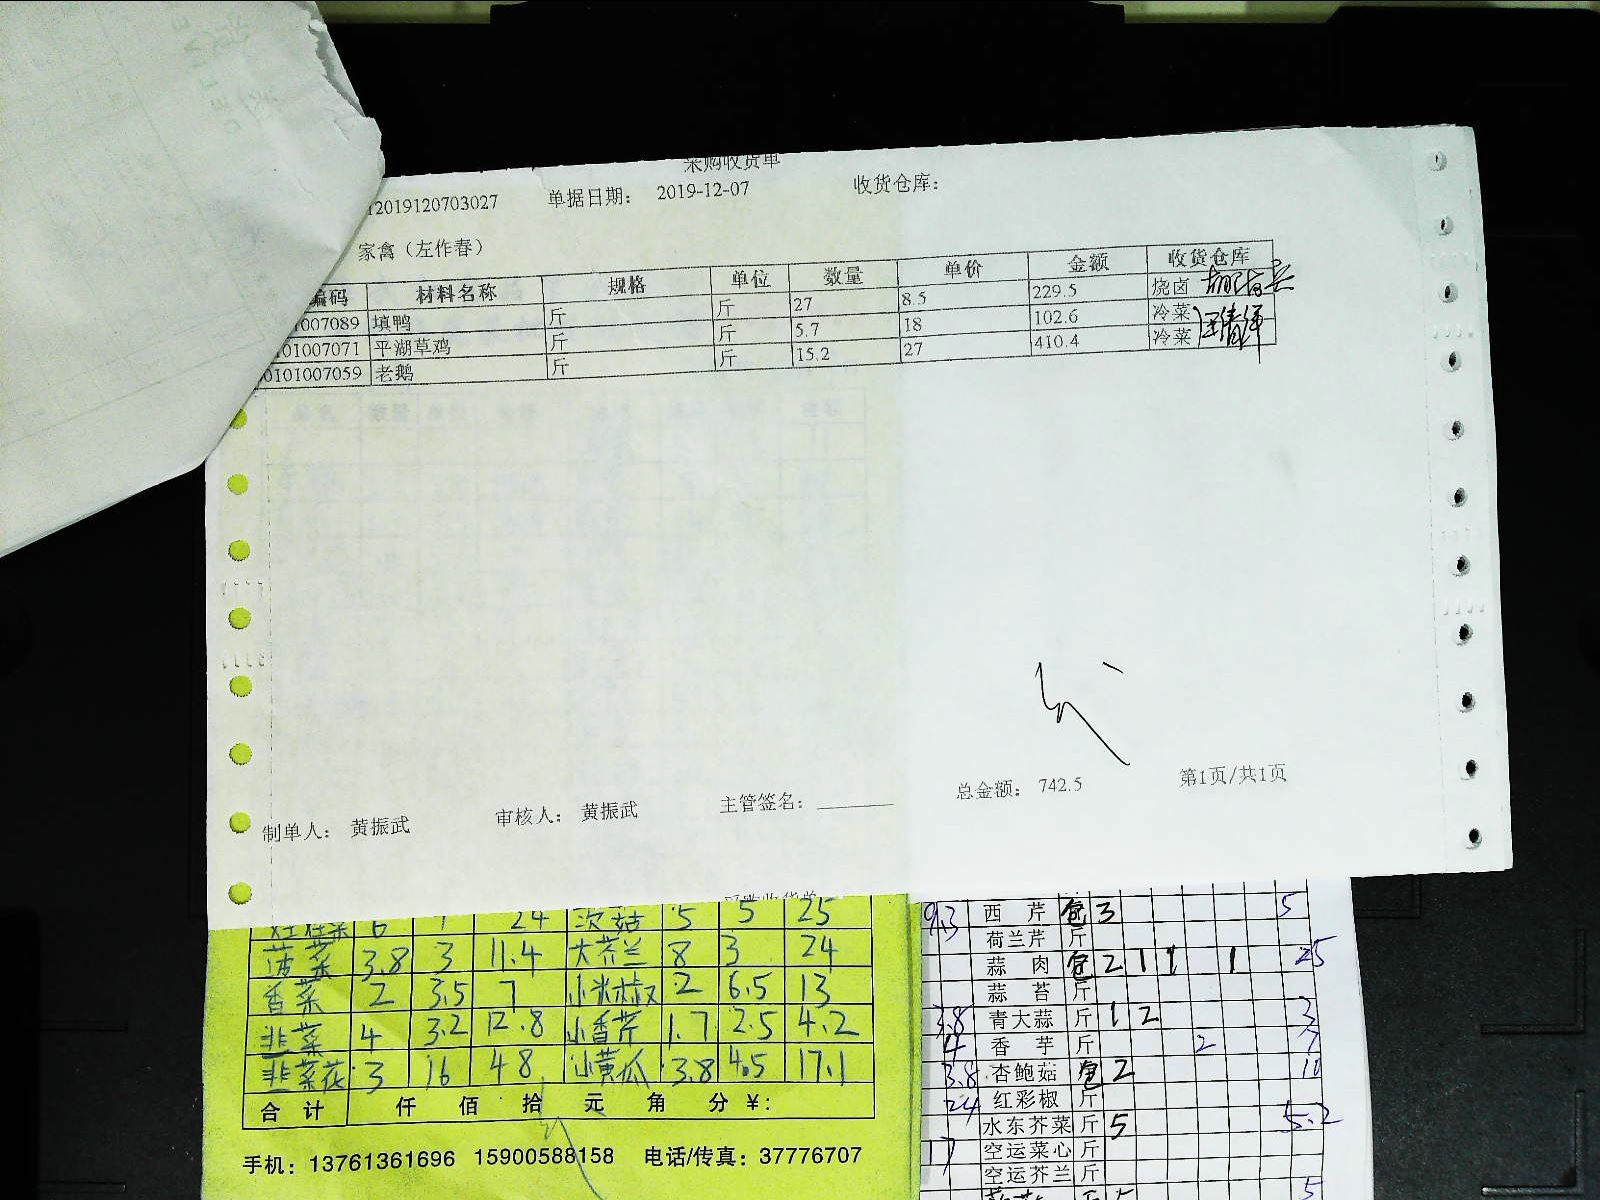 采购收货单
12019120703027 单据日期： 2019-12-07 收货仓库：
家禽（左作春）
编码 材料名称 规格 单位 数量 单价 金额 收货仓库
1007089 填鸭 斤 斤 27 8.5 229.5 烧卤
101007071 平湖草鸡 斤 斤 5.7 18 102.6 冷菜
0101007059 老鹅 斤 斤 15.2 27 410.4 冷菜
总金额： 742.5 第1页/共1页
制单人： 黄振武 审核人： 黄振武 主管签名：
6 1 24 茨菇 5 5 25
菠菜 3.8 3 11.4 大芥兰 8 3 24
香菜 2 3.5 7 小米椒 2 6.5 13
韭菜 4 3.2 12.8 小香芹 1.7 2.5 4.2
韭菜花 3 16 48 小黄瓜 3.8 4.5 17.1
合计 仟 佰 拾 元 角 分 ￥：
手机：13761361696 15900588158 电话/传真：37776707
9.3 西芹 包 3 5
荷兰芹 斤
蒜肉 包 2 1 1 1 25
蒜苔 斤
3.8 青大蒜 斤 1 2 3
4 香芋 斤 2 7
3.8 杏鲍菇 包 2 10
24 红彩椒 斤
水东芥菜 斤 5 5.2
17 空运菜心 斤
空运芥兰 斤
5